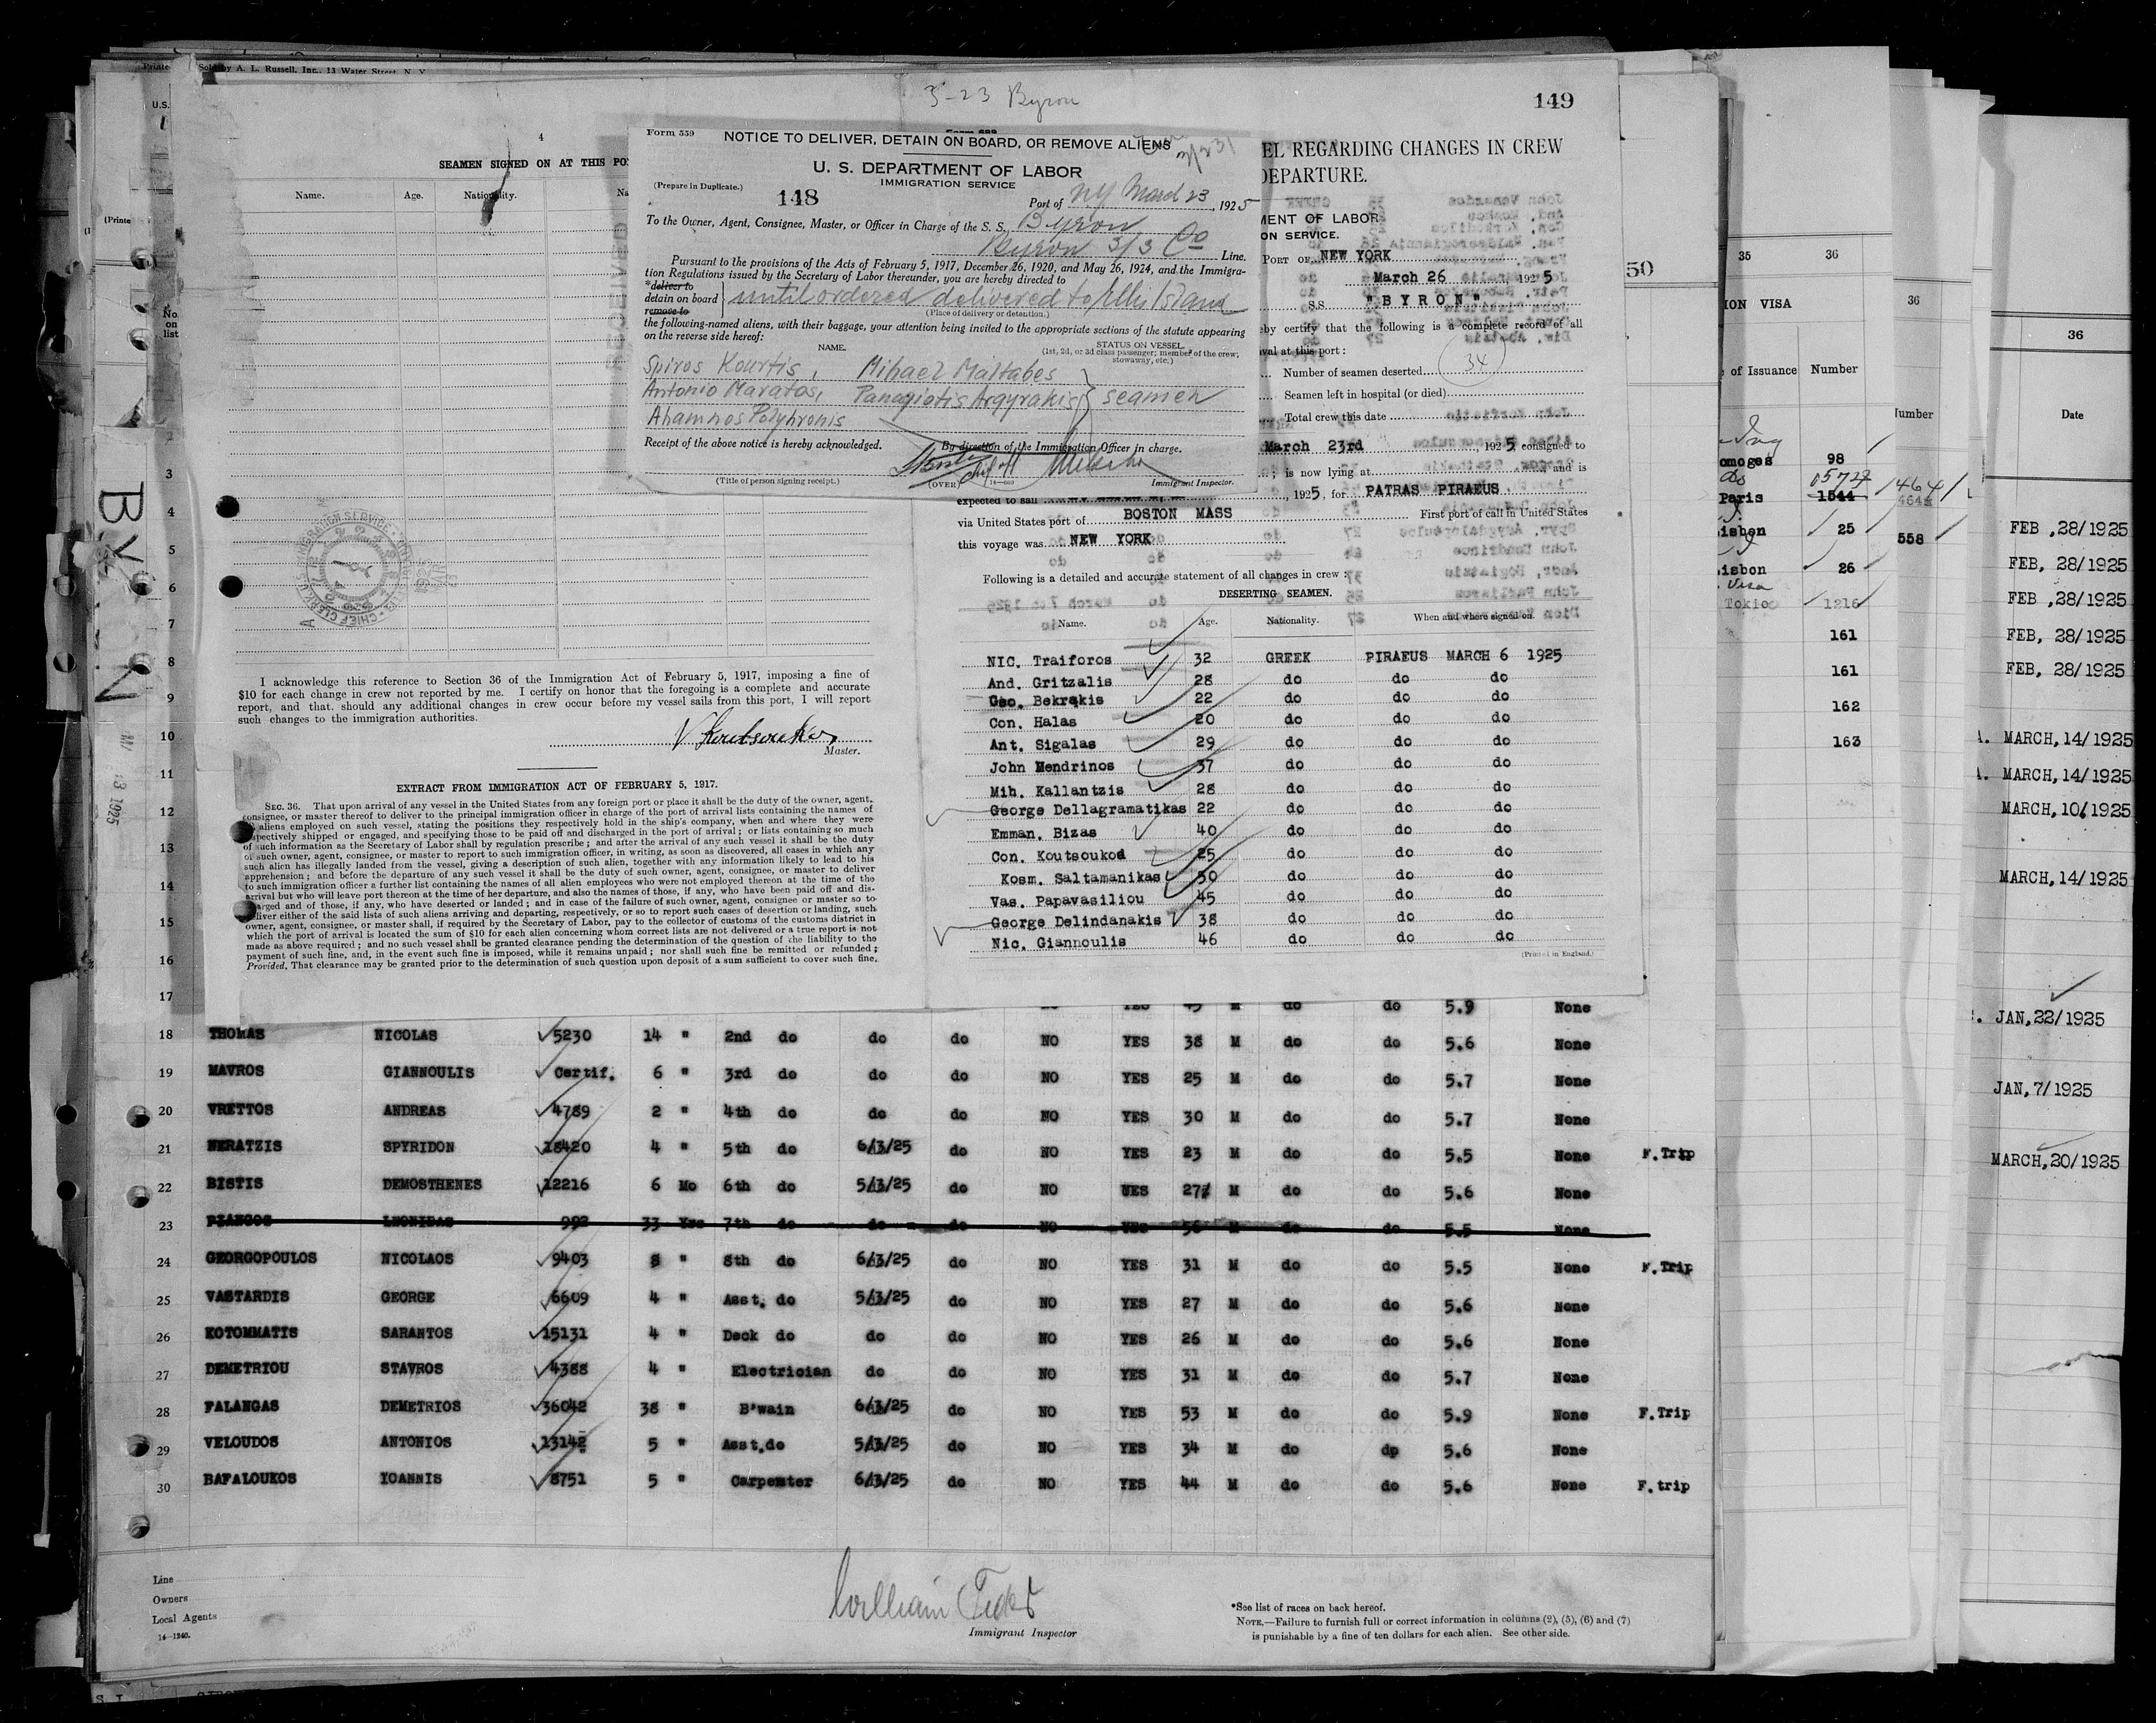 Sold by A. L. Russell, Inc., 13 Water Street, N. Y.
3-23 Byron
149
4
SEAMEN SIGNED ON AT THIS
Name.
Age.
Nationality.
Form 559
NOTICE TO DELIVER, DETAIN ON BOARD, OR REMOVE ALIENS
U. S. DEPARTMENT OF LABOR
IMMIGRATION SERVICE
(Prepare in Duplicate.)
148
Port of NY March 23, 1925
To the Owner, Agent, Consignee, Master, or Officer in Charge of the S. S. Byron
Byron S/S Co Line.
Pursuant to the provisions of the Acts of February 5, 1917, December 26, 1920, and May 26, 1924, and the Immigra-
tion Regulations issued by the Secretary of Labor thereunder, you are hereby directed to
*deliver to
detain on board until ordered delivered to Ellis Island
remove to
(Place of delivery or detention.)
the following-named aliens, with their baggage, your attention being invited to the appropriate sections of the statute appearing
on the reverse side hereof:
NAME.
STATUS ON VESSEL.
(1st, 2d, or 3d class passenger; member of the crew;
stowaway, etc.)
Spiros Kourtis, Mihael Maltabes
Antonio Maratos, Panagiotis Argyrakis seamen
Ahamnos Polyhronis
Receipt of the above notice is hereby acknowledged.
By direction of the Immigration Officer in charge.
(Title of person signing receipt.)
(OVER)
Immigrant Inspector.
EL REGARDING CHANGES IN CREW
DEPARTURE.
MENT OF LABOR
ON SERVICE.
PORT OF NEW YORK
March 26, 1925
S.S. "BYRON"
by certify that the following is a complete record of all
val at this port:
Number of seamen deserted 34
Seamen left in hospital (or died)
Total crew this date
March 23rd, 1925, consigned to
; is now lying at and is
expected to sail , 1925, for PATRAS PIRAEUS
via United States port of BOSTON MASS First port of call in United States
this voyage was NEW YORK
Following is a detailed and accurate statement of all changes in crew:
DESERTING SEAMEN.
Name. Age. Nationality. When and where signed on.
NIC. Traiforos 32 GREEK PIRAEUS MARCH 6 1925
And. Gritzalis 28 do do do
Geo. Bekrakis 22 do do do
Con. Halas 20 do do do
Ant. Sigalas 29 do do do
John Mendrinos 37 do do do
Mih. Kallantzis 28 do do do
George Dellagramatikas 22 do do do
Emman. Bizas 40 do do do
Con. Koutsoukos 25 do do do
Kosm. Saltamanikas 50 do do do
Vas. Papavasiliou 45 do do do
George Delindanakis 38 do do do
Nic. Giannoulis 46 do do do
(Printed in England.)
I acknowledge this reference to Section 36 of the Immigration Act of February 5, 1917, imposing a fine of
$10 for each change in crew not reported by me. I certify on honor that the foregoing is a complete and accurate
report, and that, should any additional changes in crew occur before my vessel sails from this port, I will report
such changes to the immigration authorities.
V Koutsoukos
Master.
EXTRACT FROM IMMIGRATION ACT OF FEBRUARY 5, 1917.
SEC. 36. That upon arrival of any vessel in the United States from any foreign port or place it shall be the duty of the owner, agent,
consignee, or master thereof to deliver to the principal immigration officer in charge of the port of arrival lists containing the names of
aliens employed on such vessel, stating the positions they respectively hold in the ship's company, when and where they were
respectively shipped or engaged, and specifying those to be paid off and discharged in the port of arrival; or lists containing so much
of such information as the Secretary of Labor shall by regulation prescribe; and after the arrival of any such vessel it shall be the duty
of such owner, agent, consignee, or master to report to such immigration officer, in writing, as soon as discovered, all cases in which any
such alien has illegally landed from the vessel, giving a description of such alien, together with any information likely to lead to his
apprehension; and before the departure of any such vessel it shall be the duty of such owner, agent, consignee, or master to deliver
to such immigration officer a further list containing the names of all alien employees who were not employed thereon at the time of the
arrival but who will leave port thereon at the time of her departure, and also the names of those, if any, who have been paid off and dis-
charged and of those, if any, who have deserted or landed; and in case of the failure of such owner, agent, consignee or master so to
deliver either of the said lists of such aliens arriving and departing, respectively, or so to report such cases of desertion or landing, such
owner, agent, consignee, or master shall, if required by the Secretary of Labor, pay to the collector of customs of the customs district in
which the port of arrival is located the sum of $10 for each alien concerning whom correct lists are not delivered or a true report is not
made as above required; and no such vessel shall be granted clearance pending the determination of the question of the liability to the
payment of such fine, and, in the event such fine is imposed, while it remains unpaid; nor shall such fine be remitted or refunded;
Provided, That clearance may be granted prior to the determination of such question upon deposit of a sum sufficient to cover such fine.
No.
on
list
3
4
5
6
7
8
9
10
11
12
13
14
15
16
17 YES 45 M do do 5.9 None
18 THOMAS NICOLAS 5230 14 " 2nd do do do NO YES 38 M do do 5.6 None
19 MAVROS GIANNOULIS Certif. 6 " 3rd do do do NO YES 25 M do do 5.7 None
20 VRETTOS ANDREAS 4789 2 " 4th do do do NO YES 30 M do do 5.7 None
21 NERATZIS SPYRIDON 18420 4 " 5th do 6/3/25 do NO YES 23 M do do 5.5 None F.Trip
22 BISTIS DEMOSTHENES 12216 6 Mo 6th do 5/3/25 do NO UES 27 M do do 5.6 None
23 PIANGOS LEONIDAS 992 33 Yrs 7th do do do NO YES 56 M do do 5.5 None
24 GEORGOPOULOS NICOLAOS 9403 8 " 8th do 6/3/25 do NO YES 31 M do do 5.5 None F.Trip
25 VASTARDIS GEORGE 6609 4 " Asst. do 5/3/25 do NO YES 27 M do do 5.6 None
26 KOTOMMATIS SARANTOS 15131 4 " Deck do do do NO YES 26 M do do 5.6 None
27 DEMETRIOU STAVROS 4388 4 " Electrician do do NO YES 31 M do do 5.7 None
28 FALANGAS DEMETRIOS 36042 38 " B'wain 6/3/25 do NO YES 53 M do do 5.9 None F.Trip
29 VELOUDOS ANTONIOS 13142 5 " Asst.do 5/3/25 do NO YES 34 M do dp 5.6 None
30 BAFALOUKOS YOANNIS 8751 5 " Carpenter 6/3/25 do NO YES 44 M do do 5.6 None F.trip
Line
Owners
Local Agents
14—1240.
Immigrant Inspector
*See list of races on back hereof.
NOTE.—Failure to furnish full or correct information in columns (2), (5), (6) and (7)
is punishable by a fine of ten dollars for each alien. See other side.
50
35 36
ION VISA
of Issuance Number
98
Paris 1544
isbon 25
isbon 26
Visa
Tokio 1216
161
161
162
163
36
Number
1464
558
36
Date
FEB ,28/1925
FEB, 28/1925
FEB ,28/1925
FEB, 28/1925
FEB, 28/1925
MARCH,14/1925
MARCH,14/1925
MARCH,10/1925
MARCH,14/1925
JAN,22/1925
JAN,7/1925
MARCH,20/1925